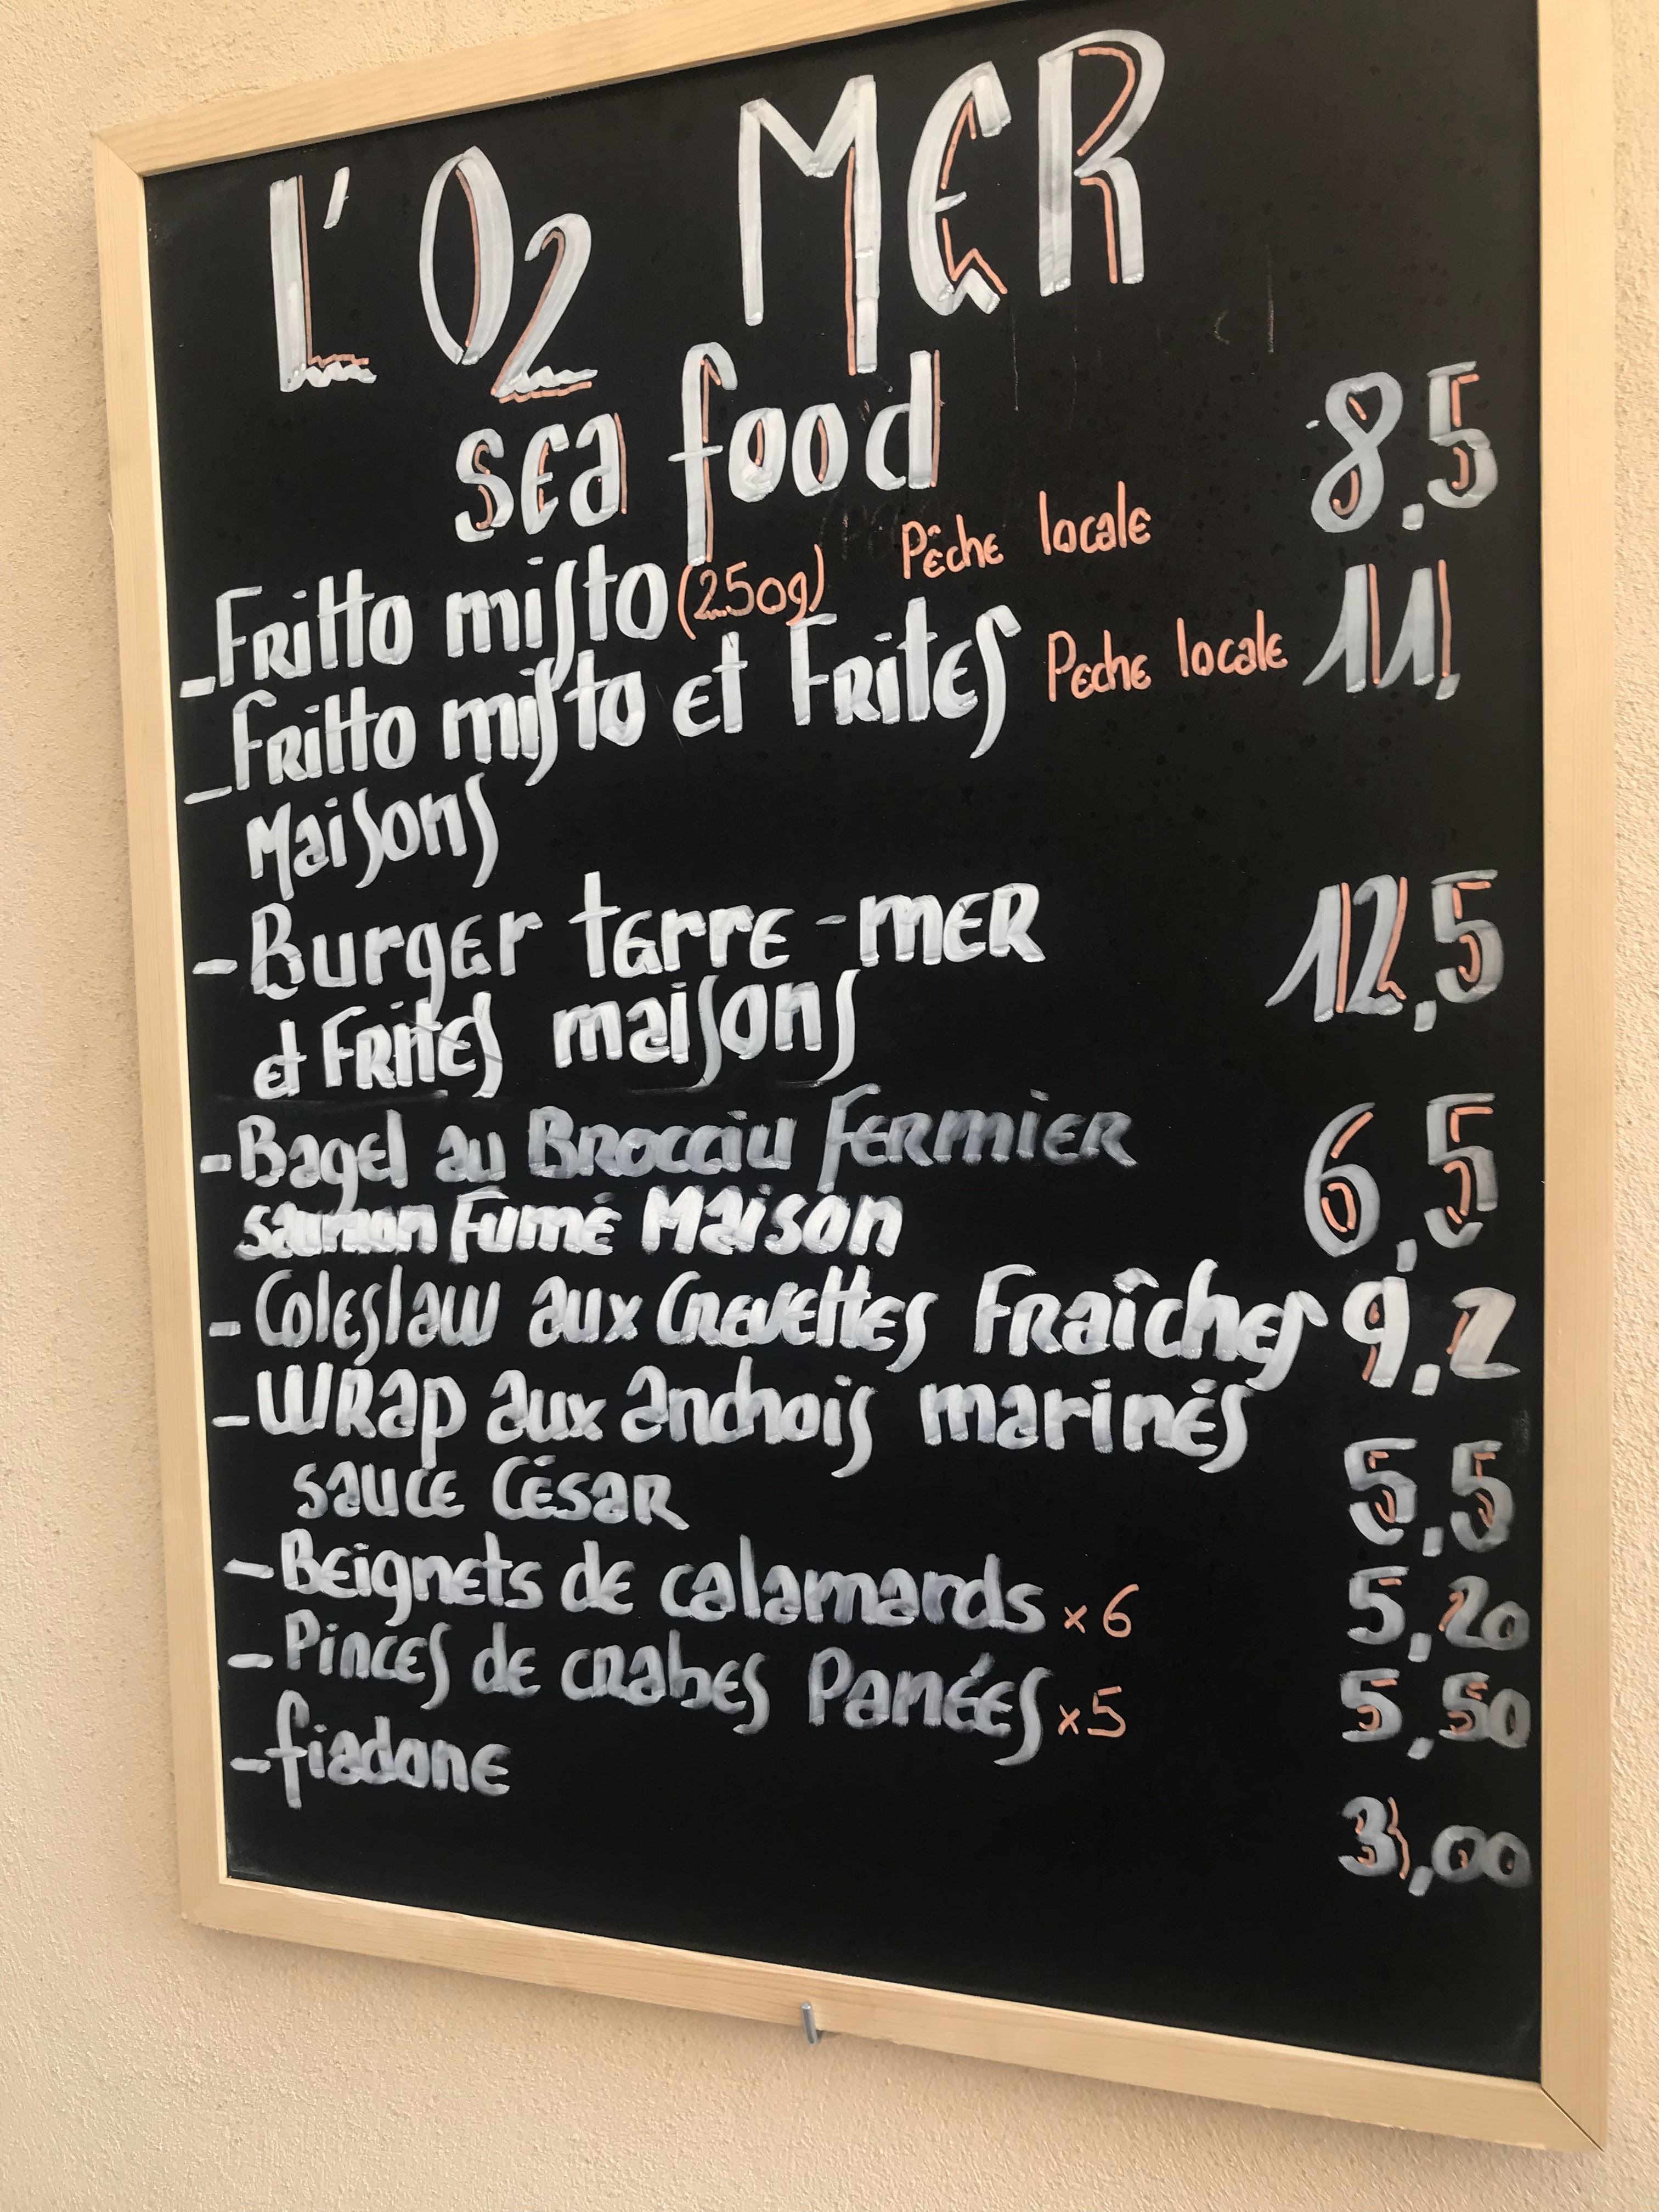 L'O2 MER
sea food
- Fritto misto (250g) Pêche locale 8.5
- Fritto misto et Frites Peche locale 11,
Maisons
- Burger terre-mer 12,5
et Frites maisons
- Bagel au Brocciu fermier 6,5
saumon Fumé Maison
- Coleslaw aux Crevettes Fraîches 9.2
- Wrap aux anchois marinés
sauce César 5,5
- Beignets de calamards x6 5,20
- Pinces de crabes Panées x5 5,50
- fiadone 3,00